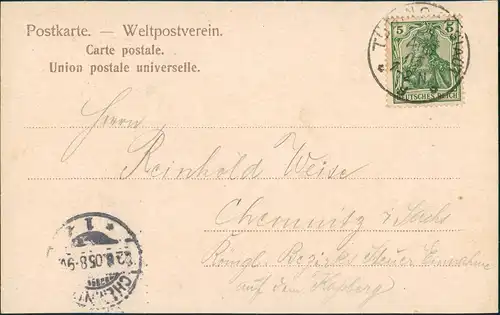 Postkarte. — Weltpostverein.
Carte postale.
Union postale universelle.
5 5
DEUTSCHES REICH
Herrn
Reinhold Weise
Chemnitz i. Sachs
Königl. Bezirks Steuer Einnahme
auf dem Kaßberg
* 1
8-9
CHEMNITZ